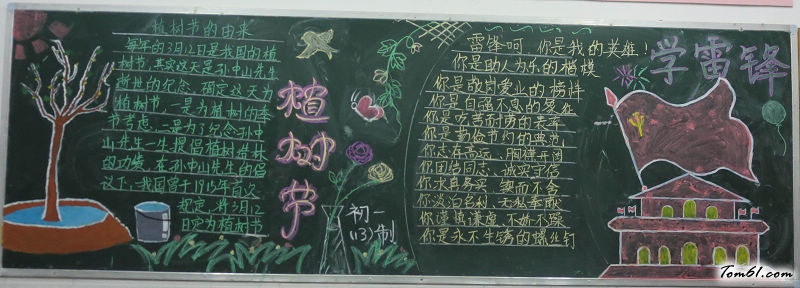 植树节的由来
每年的3月12日是我国的植
树节,其实这天是孙中山先生
逝世的纪念,确定这天为
植树节,一是为植树的季
节考虑,二是为了纪念孙中
山先生一生提倡植树造林
的功绩,在孙中山先生的倡
议下,我国曾于1915年首次
规定,将3月12
日定为植树节
植树节
初一
(13)制
雷锋呵,你是我的英雄!
你是助人为乐的楷模
你是敬岗爱业的榜样
你是自强不息的象征
你是吃苦耐劳的表率
你是勤俭节约的典范
你志存高远、胸襟开阔
你团结同志、诚实守信
你求真务实、锲而不舍
你淡泊名利、无私奉献
你谨慎谦虚、不娇不躁
你是永不生锈的螺丝钉
学雷锋
Tom61.com